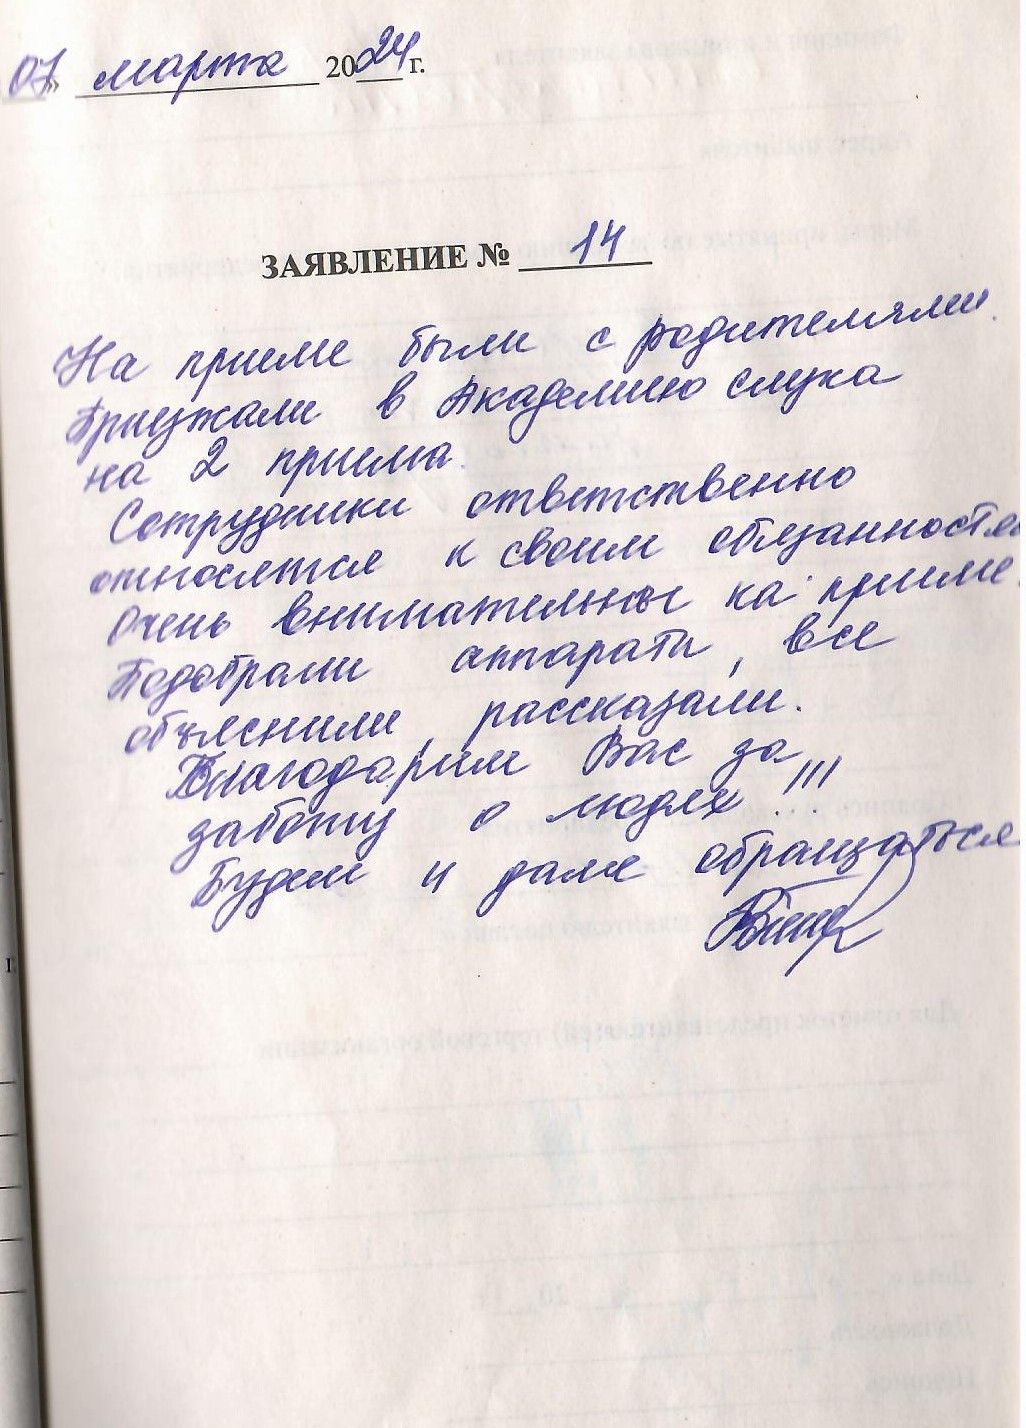 07» марта 2024 г.
ЗАЯВЛЕНИЕ № 14
На приеме были с родителями.
Приезжали в Академию слуха
на 2 приема.
Сотрудники ответственно
относятся к своим обязанностям
Очень внимательны на приеме.
Подобрали аппараты, все
объяснили, рассказали.
Благодарим Вас за
заботу о людях!!!
Будем и далее обращаться